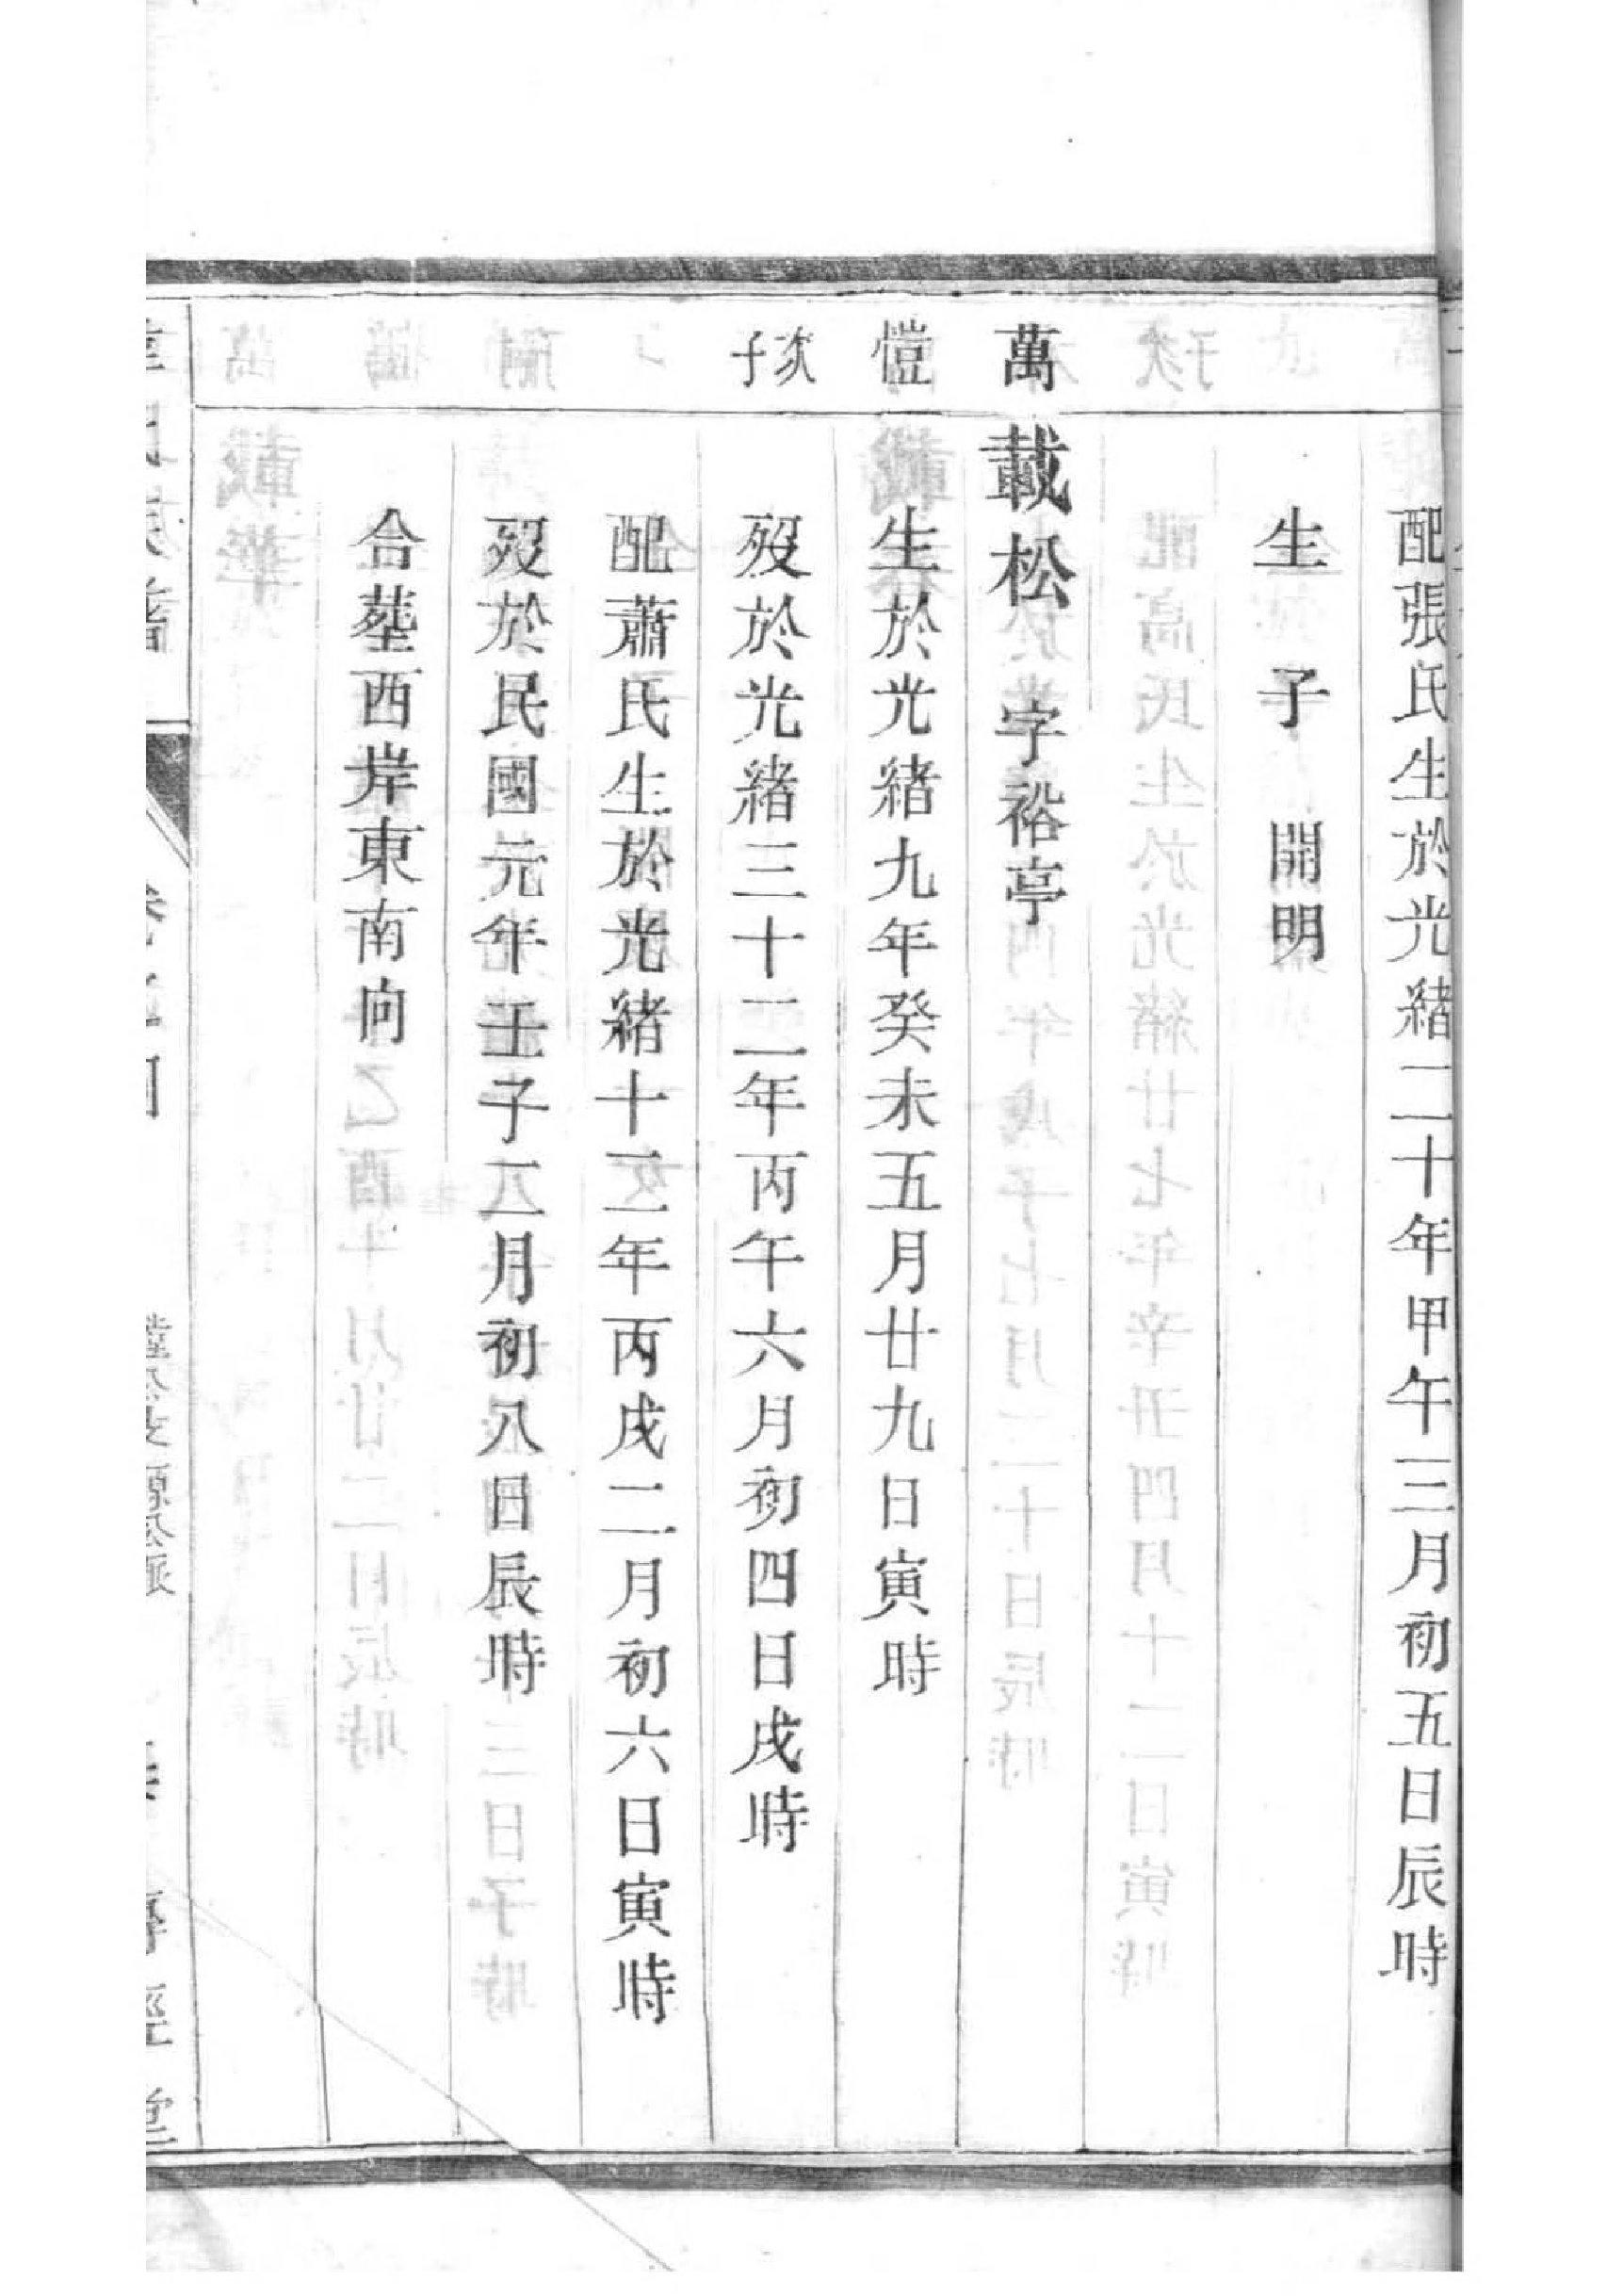 配張氏生於光緒二十年甲午三月初五日辰時
生子 開明
萬愷次子
載松 字裕亭
生於光緒九年癸未五月廿九日寅時
歿於光緒三十二年丙午六月初四日戌時
配蕭氏生於光緒十二年丙戌二月初六日寅時
歿於民國元年壬子二月初八日辰時
合塟西岸東南向